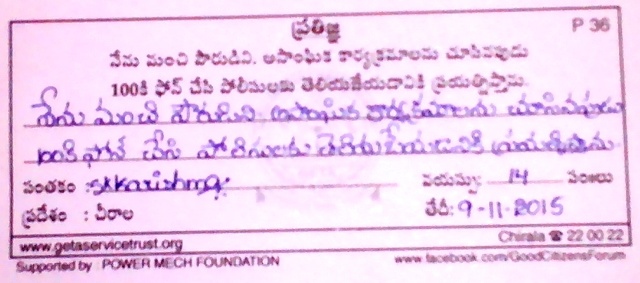 ప్రతిజ్ఞ P 36
నేను మంచి పౌరుడిని. అసాంఘిక కార్యక్రమాలను చూసినపుడు
100కి ఫోన్ చేసి పోలీసులకు తెలియజేయడానికి ప్రయత్నిస్తాను.
నేను మంచి పౌరుడిని అసాంఘిక కార్యక్రమాలను చూసినపుడు
100కి ఫోన్ చేసి పోలీసులకు తెలియజేయడానికి ప్రయత్నిస్తాను.
సంతకం : SK Karishma వయస్సు: 14 సంఃలు
ప్రదేశం : చీరాల తేదీ: 9-11-2015
www.getaservicetrust.org Chirala ☎ 22 00 22
Supported by : POWER MECH FOUNDATION www.facebook.com/GoodCitizensForum